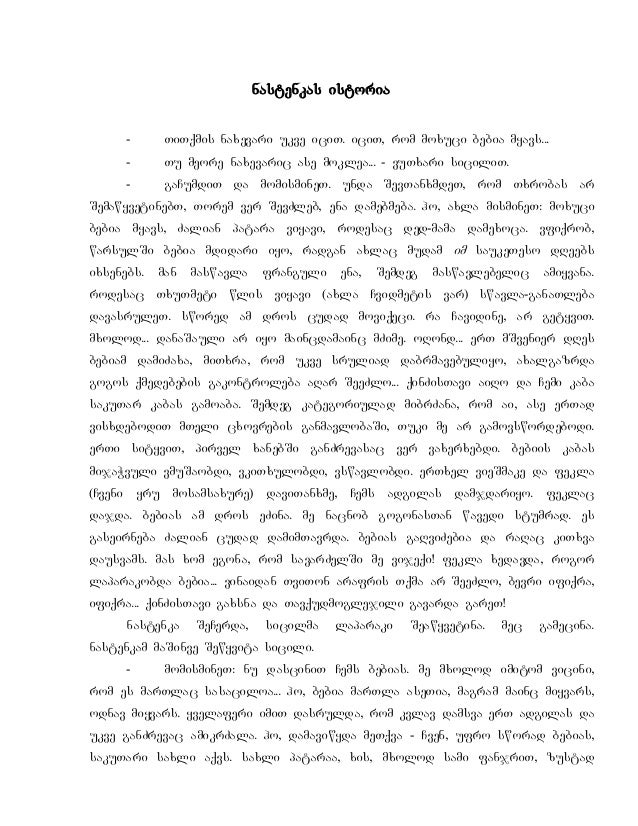 ნასტენკას ისტორია
- თითქმის ნახევარი უკვე იცით. იცით, რომ მოხუცი ბებია მყავს...
- თუ მეორე ნახევარიც ასე მოკლეა... - ვუთხარი სიცილით.
- გაჩუმდით და მომისმინეთ. უნდა შევთანხმდეთ, რომ თხრობას არ
შემაწყვეტინებთ, თორემ ვერ შევძლებ, ენა დამებმება. ჰო, ახლა მისმინეთ: მოხუცი
ბებია მყავს, ძალიან პატარა ვიყავი, როდესაც დედ-მამა დამეხოცა. ვფიქრობ,
წარსულში ბებია მდიდარი იყო, რადგან ახლაც მუდამ იმ საუკეთესო დღეებს
იხსენებს. მან მასწავლა ფრანგული ენა, შემდეგ მასწავლებელიც ამიყვანა.
როდესაც თხუთმეტი წლის ვიყავი (ახლა ჩვიდმეტის ვარ) სწავლა-განათლება
დავასრულეთ. სწორედ ამ დროს ცუდად მოვიქეცი. რა ჩავიდინე, არ გეტყვით.
მხოლოდ... დანაშაული არ იყო მაინცდამაინც მძიმე. ოღონდ... ერთ მშვენიერ დღეს
ბებიამ დამიძახა, მითხრა, რომ უკვე სრულიად დაბრმავებულიყო, ახალგაზრდა
გოგოს ქმედებების გაკონტროლება აღარ შეეძლო... ქინძისთავი აიღო და ჩემი კაბა
საკუთარ კაბას გამოაბა. შემდეგ კატეგორიულად მიბრძანა, რომ აი, ასე ერთად
ვისხდებოდით მთელი ცხოვრების განმავლობაში, თუკი მე არ გამოვსწორდებოდი.
ერთი სიტყვით, პირველ ხანებში განძრევასაც ვერ ვახერხებდი. ბებიის კაბას
მიჯაჭვული ვმუშაობდი, ვკითხულობდი, ვსწავლობდი. ერთხელ ვიეშმაკე და ფეკლა
(ჩვენი ყრუ მოსამსახურე) დავითანხმე, ჩემს ადგილას დამჯდარიყო. ფეკლაც
დაჯდა. ბებიას ამ დროს ეძინა. მე ნაცნობ გოგონასთან წავედი სტუმრად. ეს
გასეირნება ძალიან ცუდად დამიმთავრდა. ბებიას გაღვიძებია და რაღაც კითხვა
დაუსვამს. მას ხომ ეგონა, რომ სავარძელში მე ვიჯექი! ფეკლა ხედავდა, როგორ
ლაპარაკობდა ბებია... ვინაიდან თვითონ არაფრის თქმა არ შეეძლო, ბევრი იფიქრა,
იფიქრა... ქინძისთავი გახსნა და თავქუდმოგლეჯილი გავარდა გარეთ!
ნასტენკა შეჩერდა, სიცილმა ლაპარაკი შეაწყვეტინა. მეც გამეცინა.
ნასტენკამ მაშინვე შეწყვიტა სიცილი.
- მომისმინეთ: ნუ დასცინით ჩემს ბებიას. მე მხოლოდ იმიტომ ვიცინი,
რომ ეს მართლაც სასაცილოა... ჰო, ბებია მართლა ასეთია, მაგრამ მაინც მიყვარს,
ოდნავ მიყვარს. ყველაფერი იმით დასრულდა, რომ კვლავ დამსვა ერთ ადგილას და
უკვე განძრევაც ამიკრძალა. ჰო, დამავიწყდა მეთქვა - ჩვენ, უფრო სწორად ბებიას,
საკუთარი სახლი აქვს. სახლი პატარაა, ხის, მხოლოდ სამი ფანჯრით, ზუსტად